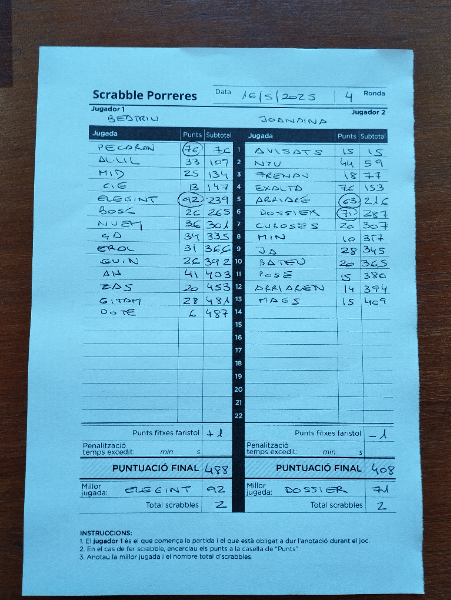 Scrabble Porreres Data 16/5/2025 4 Ronda
Jugador 1 Jugador 2
BEATRIU JOANDINA
Jugada Punts Subtotal Jugada Punts Subtotal
76 76 1 AVISATS 15 15
33 109 2 NYU 44 59
MID 25 134 3 FRENAU 18 77
CIE 13 147 4 EXALTO 76 153
ELEGINT 92 239 5 ARRIARÉ 63 216
BOSC 26 265 6 DOSSIER 71 287
36 301 7 CUROSES 20 307
GO 34 335 8 MIN 10 317
EROL 31 366 9 JA 28 345
GUIN 26 392 10 BATEU 20 365
AH 11 403 11 POSÉ 15 380
20 453 12 ARRIAREN 14 394
GITAM 28 481 13 MAGS 15 409
DOTE 6 487 14
15
16
17
18
19
20
21
22
Punts fitxes faristol +1 Punts fitxes faristol -1
Penalització temps excedit: min s Penalització temps excedit: min s
PUNTUACIÓ FINAL 488 PUNTUACIÓ FINAL 408
Millor jugada: ELEGINT 92 Millor jugada: DOSSIER 71
Total scrabbles 2 Total scrabbles 2
INSTRUCCIONS:
1. El jugador 1 és el que comença la partida i el que està obligat a dur l'anotació durant el joc.
2. En el cas de fer scrabble, encercleu els punts a la casella de "Punts"
3. Anotau la millor jugada i el nombre total d'scrabbles.